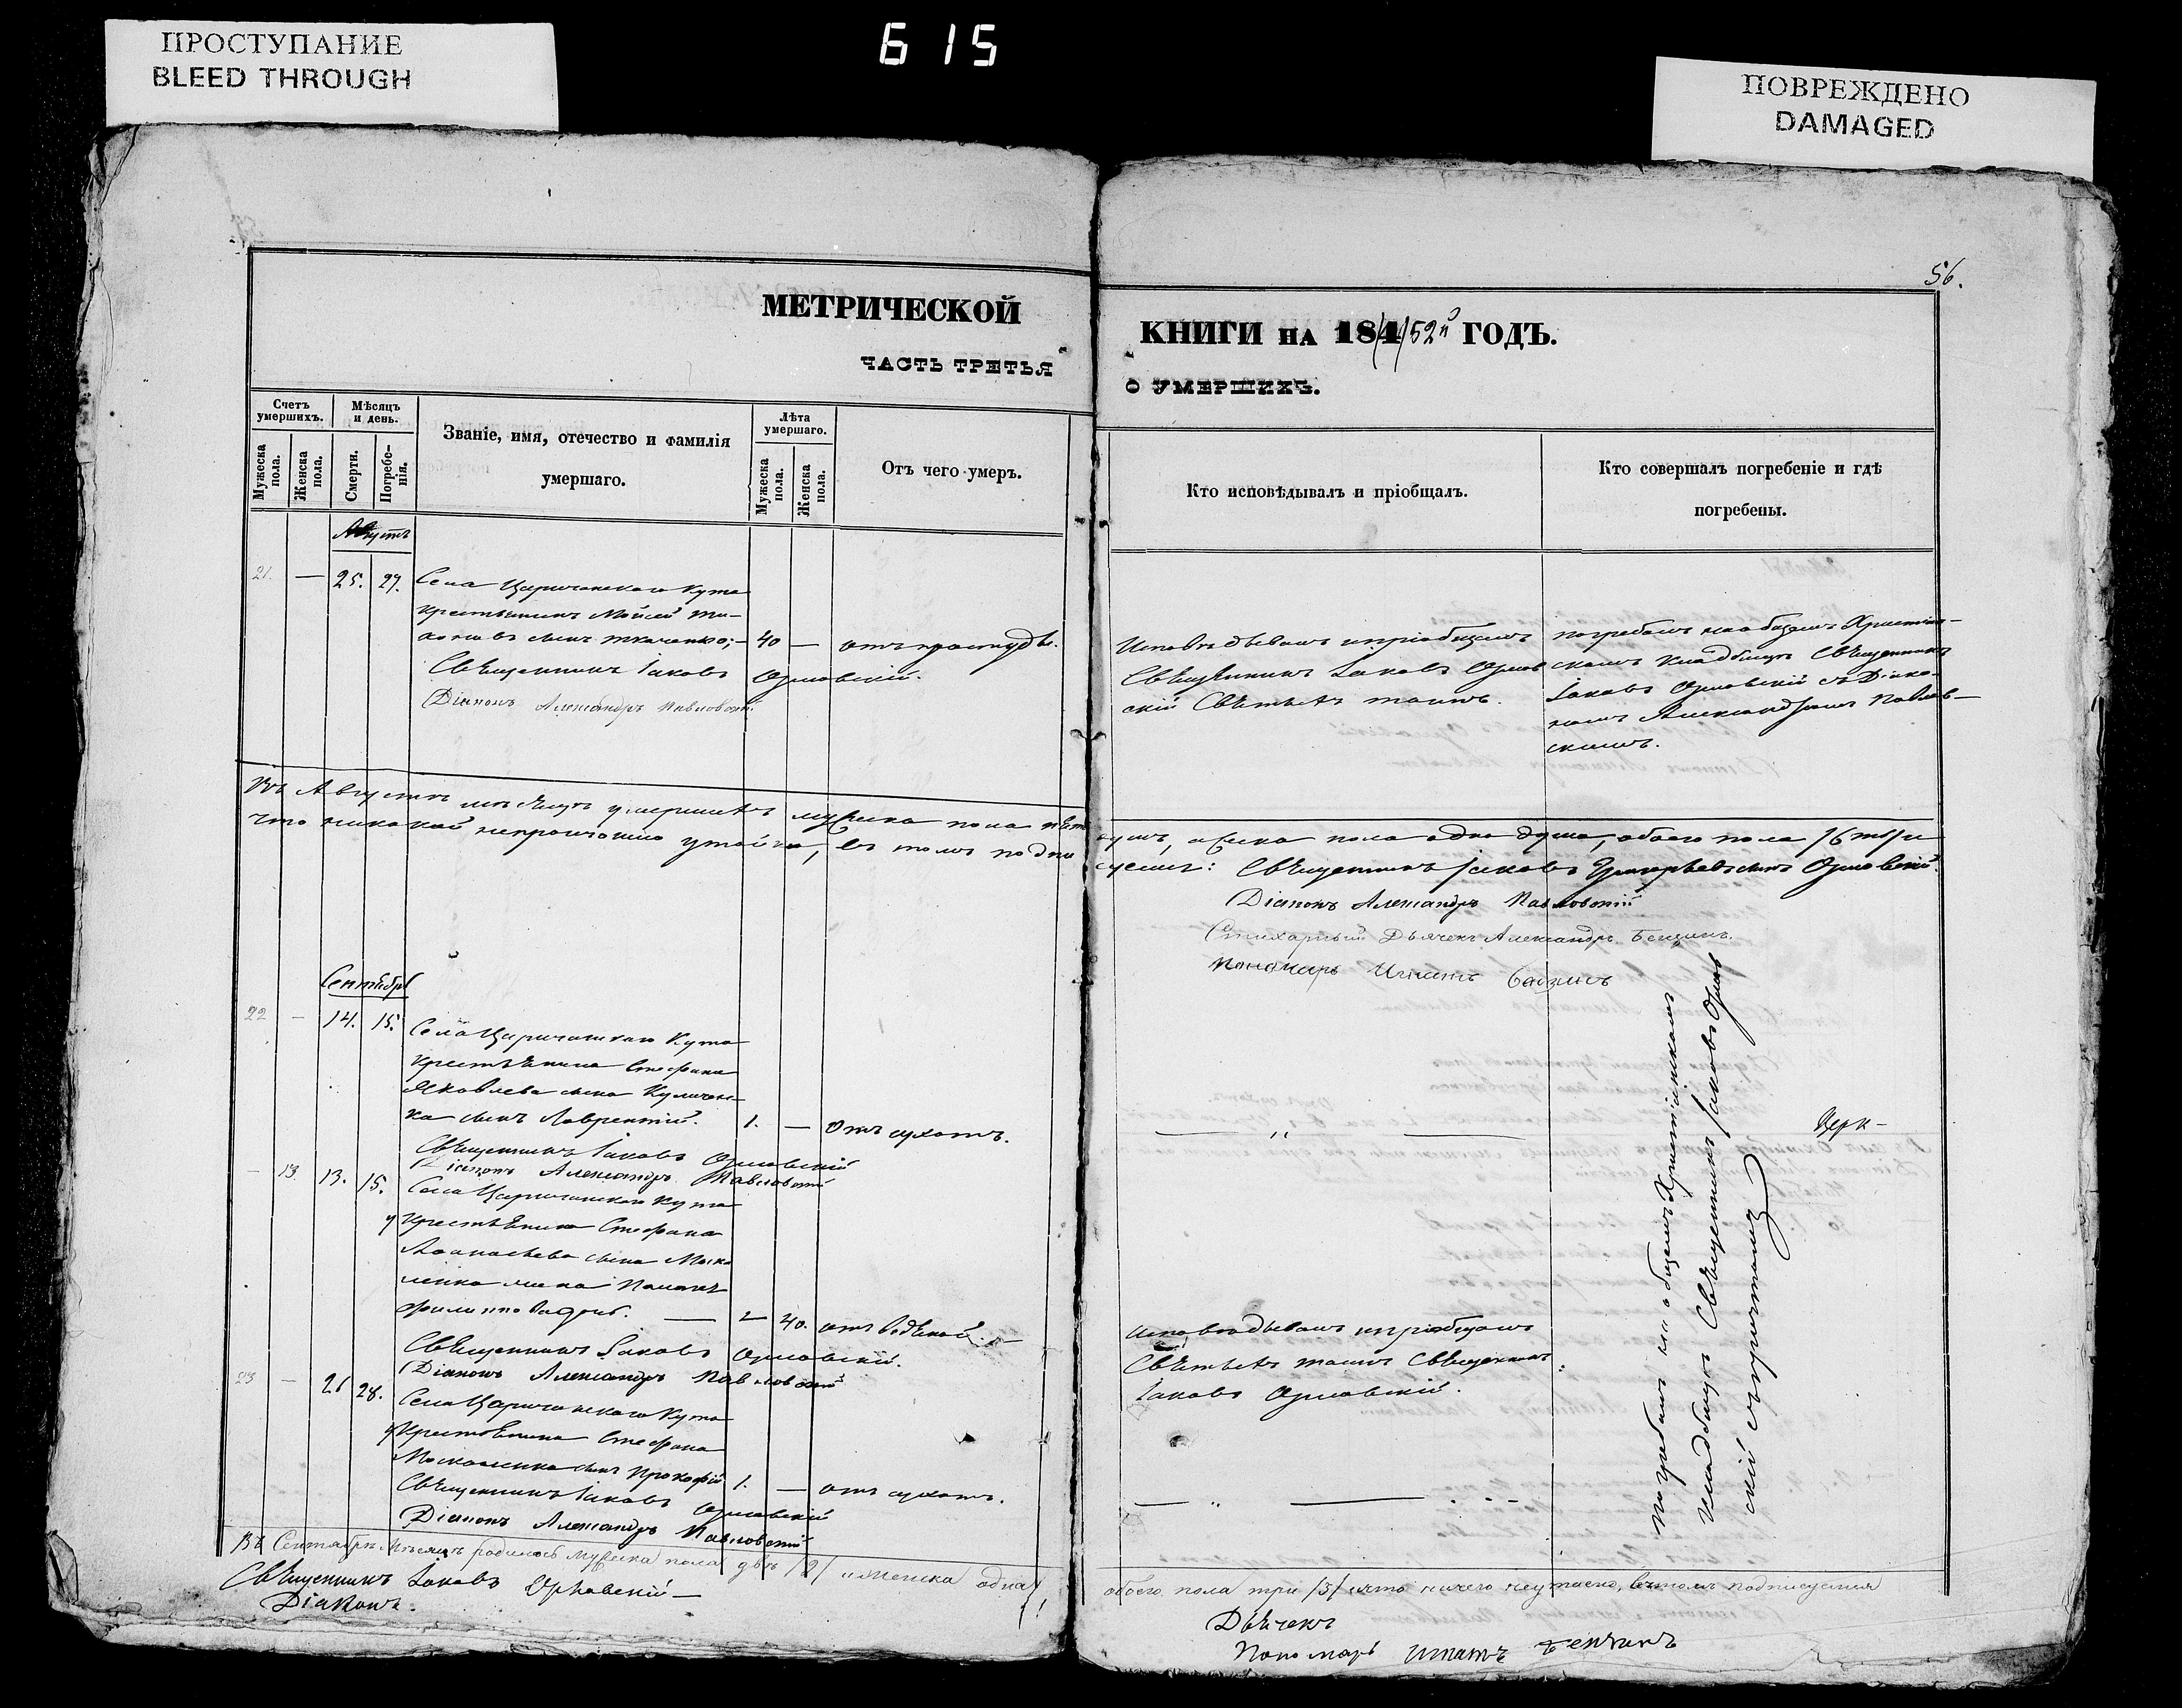 ПРОСТУПАНИЕ
BLEED THROUGH
615
ПОВРЕЖДЕНО
DAMAGED
56.
МЕТРИЧЕСКОЙ
ЧАСТЬ ТРЕТЬЯ
КНИГИ на 184/52й ГОДЪ.
О УМЕРШИХЪ.
Счетъ умершихъ.
Мужеска пола.
Женска пола.
Мѣсяцъ и день.
Смерти.
Погребенія.
Званіе, имя, отечество и фамилія
умершаго.
Лѣта умершаго.
Мужеска пола.
Женска пола.
Отъ чего умеръ.
Кто исповѣдывалъ и пріобщалъ.
Кто совершалъ погребеніе и гдѣ
погребены.
Августъ
21. — 25. 27. Села Царичанскаго Кута
крестьянинъ Мойсей Ти-
сынъ Ткаченко; — 40 — отъ простуды.
Священникъ Іаковъ Орловскій.
Діаконъ Александръ Павловскій
Исповѣдывалъ и пріобщалъ
Священникъ Іаковъ Орлов
скій Святыхъ таинъ.
погребалъ на общемъ Христіан-
скомъ кладбищѣ Священникъ
Іаковъ Орловскій съ Діако-
номъ Александромъ Павлов-
скимъ.
Въ Августѣ мѣсяцѣ умершихъ мужеска пола
женска пола одна душа, обоего пола /6
что никакой утайки, въ томъ подпи
суемъ: Священникъ Іаковъ Григорьевъ сынъ Орловскій.
Діаконъ Александръ Павловскій
Стихарный Дьячекъ Александръ
Пономарь
Сентябрь
22 — 14. 15. Села Царичанскаго Кута
крестьянина Стефана
Яковлева сына
ка сынъ Лаврентій. 1. — Отъ сухотъ.
Священникъ Іаковъ Орловскій
Діаконъ Александръ Павловскій
— 13. 13. 15. Села Царичанскаго Кута
у крестьянина Стефана
Афанасьева сына Моска
ленка жена
— 40. отъ водяной.
Священникъ Іаковъ Орловскій.
Діаконъ Александръ Павловскій
Исповѣдывалъ и пріобщалъ
Святыхъ таинъ Священникъ
Іаковъ Орловскій.
23 — 26 28. Села Царичанскаго Кута
у крестьянина Стефана
Москаленка сынъ Прокофій 1. — отъ сухотъ.
Священникъ Іаковъ Орловскій
Діаконъ Александръ Павловскій
Погребалъ на общемъ Христіанскомъ
кладбищѣ Священникъ Іаковъ Орлов
скій съ причтомъ
Церк-
Въ Сентябрѣ Мѣсяцѣ родилось Мужеска пола два /2/ и женска одна
обоего пола три /3/ и что ничего неутаено, въ томъ подписуемся
Священникъ Іаковъ Орловскій —
Діаконъ.
Дьячекъ
Пономарь